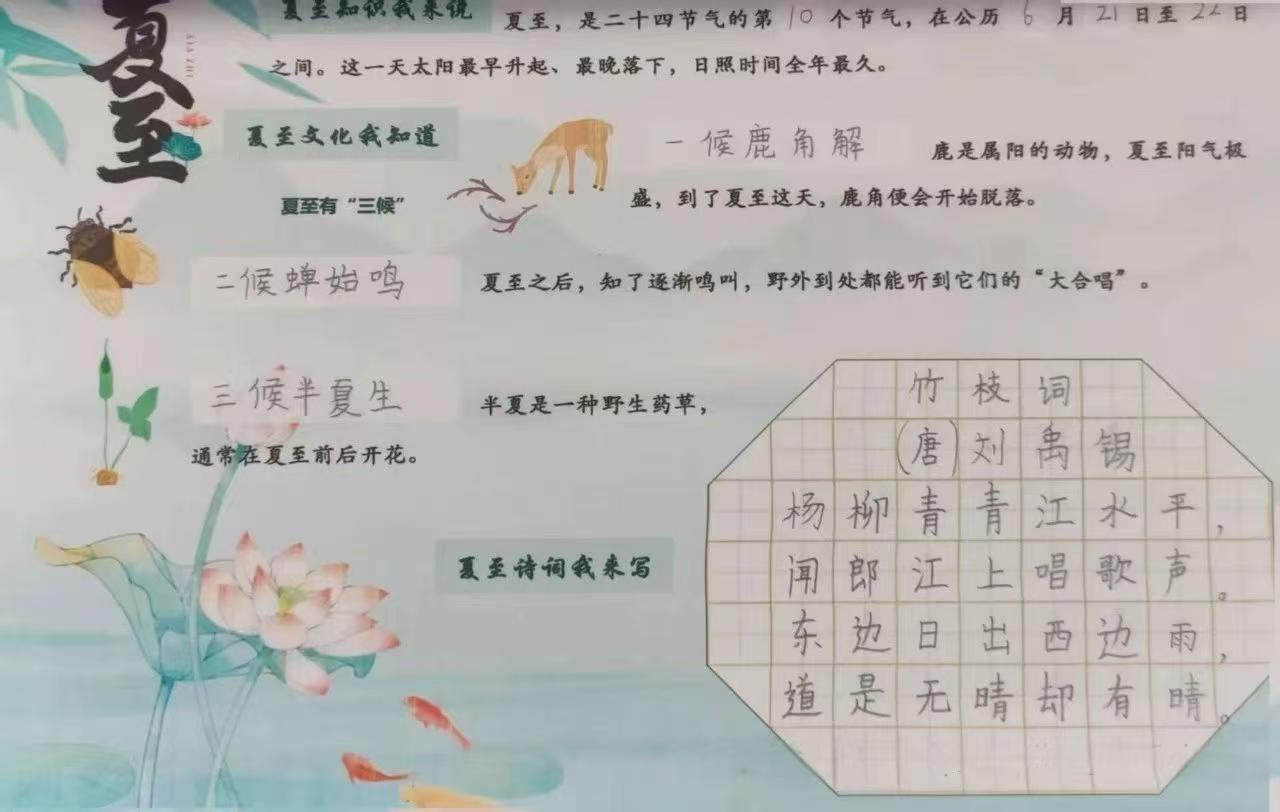 夏至
XIA ZHI
夏至知识我来说
夏至，是二十四节气的第10个节气，在公历6月21日至22日
之间。这一天太阳最早升起、最晚落下，日照时间全年最久。
夏至文化我知道
夏至有“三候”
一候鹿角解
鹿是属阳的动物，夏至阳气极
盛，到了夏至这天，鹿角便会开始脱落。
二候蝉始鸣
夏至之后，知了逐渐鸣叫，野外到处都能听到它们的“大合唱”。
三候半夏生
半夏是一种野生药草，
通常在夏至前后开花。
夏至诗词我来写
竹枝词
(唐)刘禹锡
杨柳青青江水平，
闻郎江上唱歌声。
东边日出西边雨，
道是无晴却有晴。